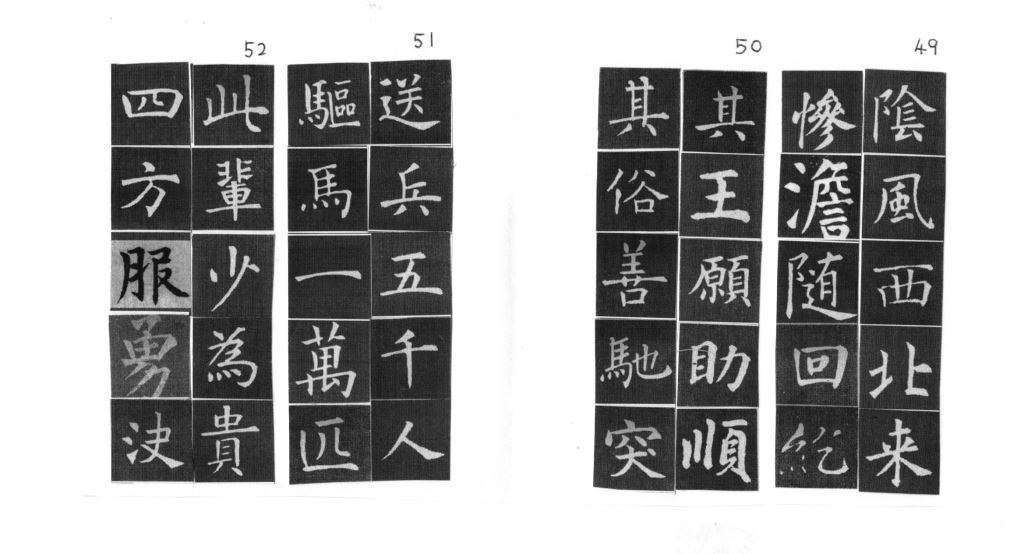 49
陰風西北来
慘澹随回紇
50
其王願助順
其俗善馳突
51
送兵五千人
驅馬一萬匹
52
此輩少為貴
四方服勇決